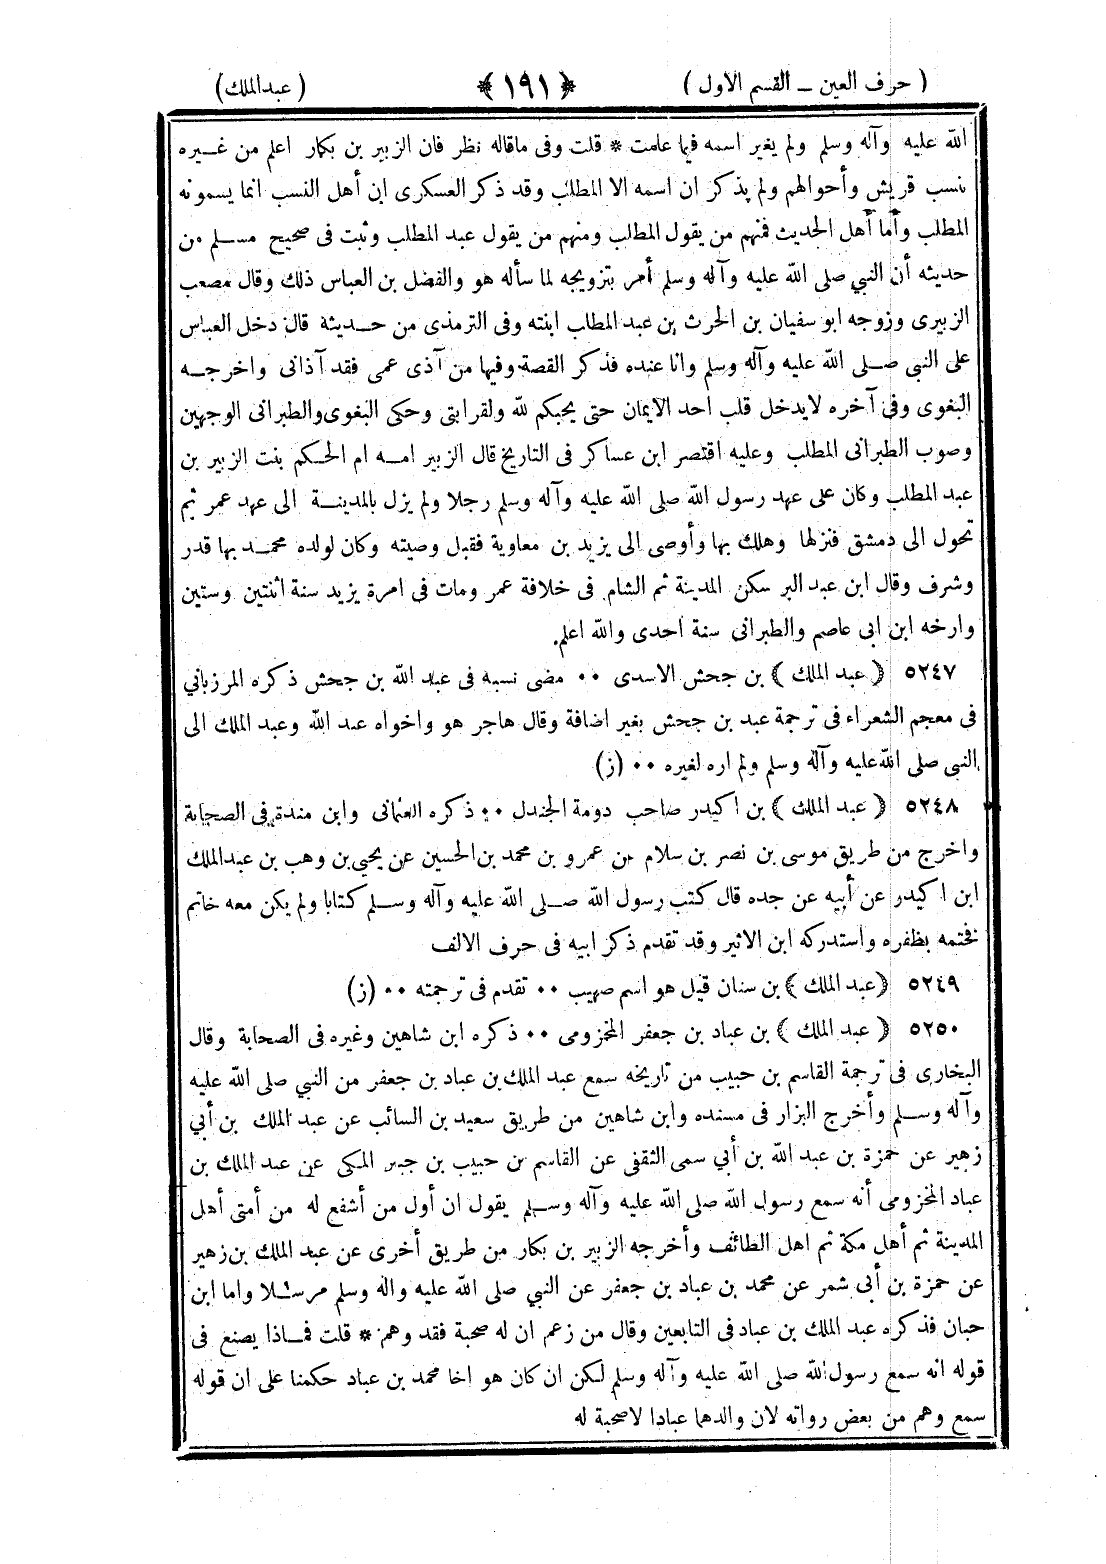 ( حرف العين ــ القسم الاول ) ﴿ ١٩١ ﴾ ( عبدالملك )
الله عليه وآله وسلم ولم يغير اسمه فيما علمت * قلت وفى ماقاله نظر فان الزبير بن بكار اعلم من غــيره
بنسب قريش وأحوالهم ولم يذكر ان اسمه الا المطلب وقد ذكر العسكرى ان أهل النسب انما يسمونه
المطلب وأما أهل الحديث فمنهم من يقول المطلب ومنهم من يقول عبد المطلب وثبت فى صحيح مســلم من
حديثه أن النبي صلى الله عليه وآله وسلم أمر بتزويجه لما سأله هو والفضل بن العباس ذلك وقال مصعب
الزبيرى وزوجه ابو سفيان بن الحرث بن عبد المطلب ابنته وفى الترمذى من حــديثه قال دخل العباس
على النبى صــلى الله عليه وآله وسلم وانا عنده فذكر القصة وفيها من آذى عمى فقد آذانى واخرجــه
البغوى وفى آخره لايدخل قلب احد الايمان حتى يحبكم لله ولقرابتى وحكى البغوى والطبرانى الوجهين
وصوب الطبرانى المطلب وعليه اقتصر ابن عساكر فى التاريخ قال الزبير امــه ام الحــكم بنت الزبير بن
عبد المطلب وكان على عهد رسول الله صلى الله عليه وآله وسلم رجلا ولم يزل بالمدينــة الى عهد عمر ثم
تحول الى دمشق فنزلها وهلك بها وأوصى الى يزيد بن معاوية فقبل وصيته وكان لولده محمــد بها قدر
وشرف وقال ابن عبد البر سكن المدينة ثم الشام فى خلافة عمر ومات فى امرة يزيد سنة اثنتين وستين
وارخه ابن ابى عاصم والطبرانى سنة احدى والله اعلم.
٥٢٤٧ ﴿ عبد الملك ﴾ بن جحش الاسدى ٠٠ مضى نسبه فى عبد الله بن جحش ذكره المرزباني
فى معجم الشعراء فى ترجمة عبد بن جحش بغير اضافة وقال هاجر هو واخواه عبد الله وعبد الملك الى
النبى صلى الله عليه وآله وسلم ولم اره لغيره ٠٠ (ز)
٥٢٤٨ ﴿ عبد الملك ﴾ بن اكيدر صاحب دومة الجندل ٠٠ ذكره العثمانى وابن مندة فى الصحابة
واخرج من طريق موسى بن نصر بن سلام عن عمرو بن محمد بن الحسين عن يحيى بن وهب بن عبدالملك
ابن اكيدر عن أبيه عن جده قال كتب رسول الله صــلى الله عليه وآله وســلم كتابا ولم يكن معه خاتم
فختمه بظفره واستدركه ابن الاثير وقد تقدم ذكر ابيه فى حرف الالف
٥٢٤٩ ﴿ عبد الملك ﴾ بن سنان قيل هو اسم صهيب ٠٠ تقدم فى ترجمته ٠٠ (ز)
٥٢٥٠ ﴿ عبد الملك ﴾ بن عباد بن جعفر المخزومى ٠٠ ذكره ابن شاهين وغيره فى الصحابة وقال
البخارى فى ترجمة القاسم بن حبيب من تاريخه سمع عبد الملك بن عباد بن جعفر من النبي صلى الله عليه
وآله وســلم وأخرج البزار فى مسنده وابن شاهين من طريق سعيد بن السائب عن عبد الملك بن أبي
زهير عن حمزة بن عبد الله بن أبي سمى الثقفى عن القاسم بن حبيب بن جبير المكى عن عبد الملك بن
عباد المخزومى أنه سمع رسول الله صلى الله عليه وآله وســلم يقول ان أول من أشفع له من أمتى أهل
المدينة ثم أهل مكة ثم اهل الطائف وأخرجه الزبير بن بكار من طريق أخرى عن عبد الملك بن زهير
عن حمزة بن أبى شمر عن محمد بن عباد بن جعفر عن النبي صلى الله عليه واله وسلم مرســلا واما ابن
حبان فذكره عبد الملك بن عباد فى التابعين وقال من زعم ان له صحبة فقد وهم * قلت فمــاذا يصنع فى
قوله انه سمع رسول الله صلى الله عليه وآله وسلم لكن ان كان هو اخا محمد بن عباد حكمنا على ان قوله
سمع وهم من بعض رواته لان والدهما عبادا لاصحبة له